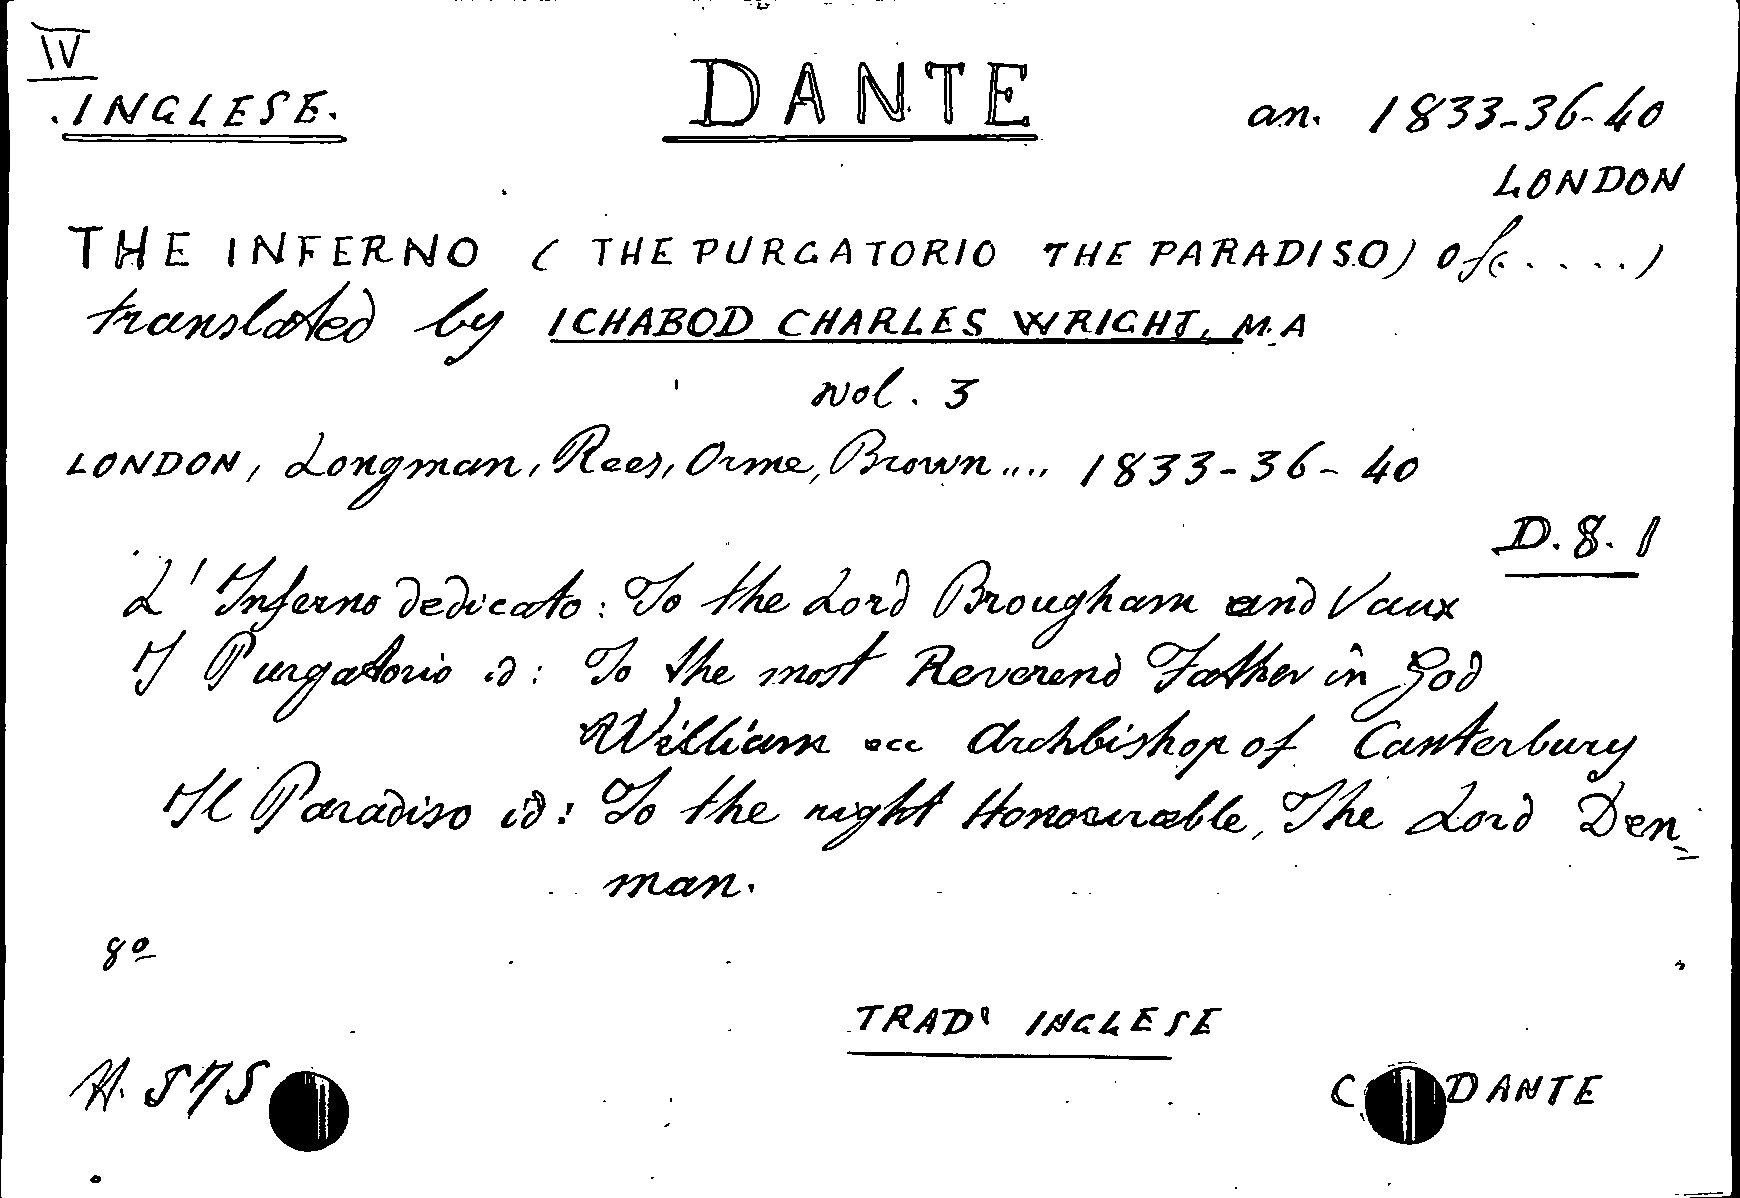 IV
.INGLESE. DANTE an. 1833-36-40
LONDON
THE INFERNO ( THE PURGATORIO THE PARADISO) of (.....)
translated by ICHABOD CHARLES WRIGHT, M.A
vol. 3
LONDON, Longman, Rees, Orme, Brown .... 1833-36-40
D. 8. 1
L' Inferno dedicato: To the Lord Brougham and Vaux
Il Purgatorio id: To the most Reverend Father in God
William ecc Archbishop of Canterbury
Il Paradiso id: To the right Honourable, The Lord Den=
man.
8º
TRADˢ INGLESE
H. 575 C DANTE